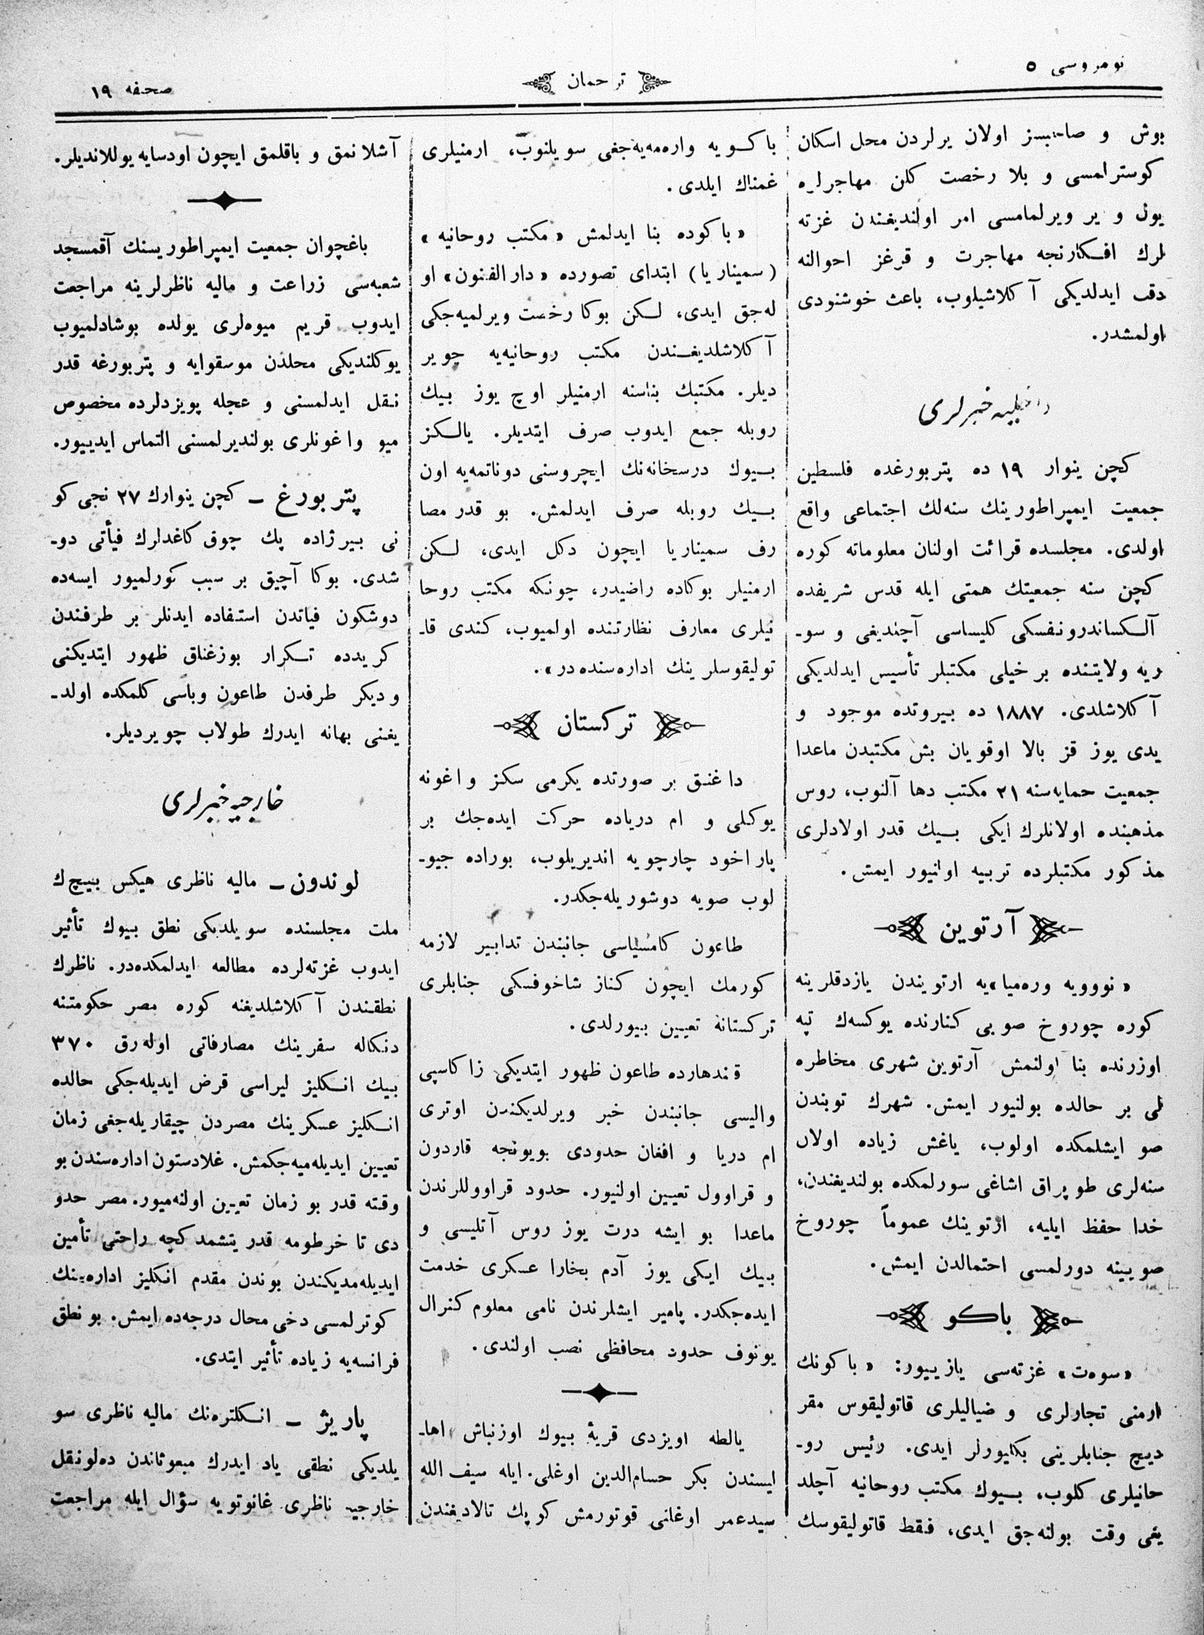 نومروسی ٥
ترجمان
صحفه ١٩
بوش و صاحبسز اولان يرلردن محل اسكان
كوسترلمسی و بلا رخصت كلن مهاجرلره
يول و ير ويرلمامسی امر اولنديغندن غزته
لرك افكارنجه مهاجرت و قرغز احوالنه
دقت ايدلديكی آكلاشيلوب، باعث خوشنودی
اولمشدر.
داخليه خبرلری
كچن ينوار ١٩ ده پتربورغده فلسطين
جمعيت ايمپراطورينك سنه‌لك اجتماعی واقع
اولدی. مجلسده قرائت اولنان معلوماته كوره
كچن سنه جمعيتك همتی ايله قدس شريفده
آلكساندرونفسكی كليساسی آچنديغی و سو-
ريه ولايتنده بر خيلی مكتبلر تأسيس ايدلديكی
آكلاشلدی. ١٨٨٧ ده بيروتده موجود و
يدی يوز قز بالا اوقويان بش مكتبدن ماعدا
جمعيت حمايه‌سنه ٢١ مكتب دها آلنوب، روس
مذهبنده اولانلرك ايكی بيك قدر اولادلری
مذكور مكتبلرده تربيه اولنيور ايمش.
آرتوين
«نوويه وره‌ميا»يه ارتويندن يازدقلرينه
كوره چوروخ صويی كنارنده يوكسه‌ك تپه
اوزرنده بنا اولنمش آرتوين شهری مخاطره
لی بر حالده بولنيور ايمش. شهرك توبندن
صو ايشلمكده اولوب، ياغش زياده اولان
سنه‌لری طوپراق اشاغی سورلمكده بولنديغندن،
خدا حفظ ايليه، ارتوينك عموماً چوروخ
صويينه دورلمسی احتمالدن ايمش.
باكو
«سوه‌ت» غزته‌سی يازييور: «باكونك
ارمنی تجارلری و ضياليلری قاتوليقوس مقر
ديچ جنابلرينی بكليورلر ايدی. رئيس رو-
حانيلری كلوب، بيوك مكتب روحانيه آچلد
يغی وقت بولنه‌جق ايدی، فقط قاتوليقوسك
باكويه واره‌ميه‌جغی سويلنوب، ارمنيلری
غمناك ايلدی.
«باكوده بنا ايدلمش «مكتب روحانيه»
(سميناريا) ابتدای تصورده «دارالفنون» او
له‌جق ايدی، لكن بوكا رخصت ويرلميه‌جكی
آكلاشلديغندن مكتب روحانيه‌يه چوير
ديلر. مكتبك بناسنه ارمنيلر اوچ يوز بيك
روبله جمع ايدوب صرف ايتديلر. يالكز
بيوك درسخانه‌نك ايچروسنی دوناتمه‌يه اون
بيك روبله صرف ايدلمش. بو قدر مصا
رف سميناريا ايچون دكل ايدی، لكن
ارمنيلر بوكاده راضيدر، چونكه مكتب روحا
نيلری معارف نظارتنده اولميوب، كندی قا-
توليقوسلرينك اداره‌سنده‌در».
تركستان
داغنق بر صورتده يكرمی سكز واغونه
يوكلی و ام درياده حركت ايده‌جك بر
پاراخود چارجويه انديريلوب، بوراده جيو-
لوب صويه دوشوريله‌جكدر.
طاعون كاميسياسی جانبندن تدابير لازمه
كورمك ايچون كناز شاخوفسكی جنابلری
تركستانه تعيين بيورلدی.
قندهارده طاعون ظهور ايتديكی زاكاسپی
واليسی جانبندن خبر ويرلديكندن اوتری
ام دريا و افغان حدودی بويونجه قاردون
و قراوول تعيين اولنيور. حدود قراووللرندن
ماعدا بو ايشه درت يوز روس آتليسی و
بيك ايكی يوز آدم بخارا عسكری خدمت
ايده‌جكدر. پامير ايشلرندن نامی معلوم كنرال
يونوف حدود محافظی نصب اولندی.
يالطه اويزدی قريۀ بيوك اوزنباش اها-
ليسندن بكر حسام‌الدين اوغلی. ايله سيف الله
سيدعمر اوغلنی قوتورمش كوپك تالاديغندن
آشلانمق و باقلمق ايچون اودسايه يوللانديلر.
باغچوان جمعيت ايمپراطوريسنك آقمسجد
شعبه‌سی زراعت و ماليه ناظرلرينه مراجعت
ايدوب قريم ميوه‌لری يولده بوشادلميوب
يوكلنديكی محلدن موسقوايه و پتربورغه قدر
نقل ايدلمسنی و عجله پويزدلرده مخصوص
ميو واغونلری بولنديرلمسنی التماس ايدييور.
پتربورغ — كچن ينوارك ٢٧ نجی كو
نی بيرژاده پك چوق كاغدلرك فيأتی دو-
شدی. بوكا آچيق بر سبب كورلميور ايسه‌ده
دوشكون فياتدن استفاده ايدنلر بر طرفندن
كريدده تكرار بوزغناق ظهور ايتديكنی
و ديكر طرفدن طاعون وباسی كلمكده اولد-
يغنی بهانه ايدرك طولاب چويرديلر.
خارجيه خبرلری
لوندون — ماليه ناظری هيكس بيچ‌ك
ملت مجلسنده سويلديكی نطق بيوك تأثير
ايدوب غزته‌لرده مطالعه ايدلمكده‌در. ناظرك
نطقندن آكلاشلديغنه كوره مصر حكومتنه
دنكاله سفرينك مصارفاتی اوله‌رق ٣٧٠
بيك انكليز ليراسی قرض ايديله‌جكی حالده
انكليز عسكرينك مصردن چيقاريله‌جغی زمان
تعيين ايديله‌ميه‌جكمش. غلادستون اداره‌سندن بو
وقته قدر بو زمان تعيين اولنه‌ميور. مصر حدو
دی تا خرطومه قدر يتشمدكچه راحتی تأمين
ايديله‌مديكندن بوندن مقدم انكليز اداره‌سنك
كوترلمسی دخی محال درجه‌ده ايمش. بو نطق
فرانسه‌يه زياده تأثير ايتدی.
پاريژ — انكلتره‌نك ماليه ناظری سو
يلديكی نطقی ياد ايدرك مبعوثاندن ده‌لونقل
خارجيه ناظری غانوتويه سؤال ايله مراجعت